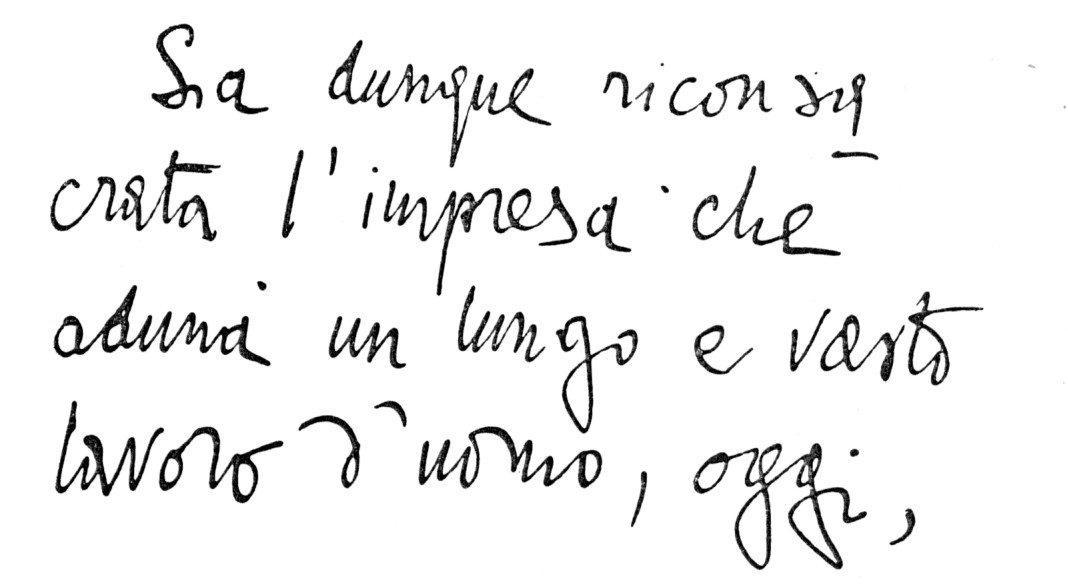 Sia dunque riconsa
crata l'impresa che
aduna un lungo e vasto
lavoro d'uomo, oggi,